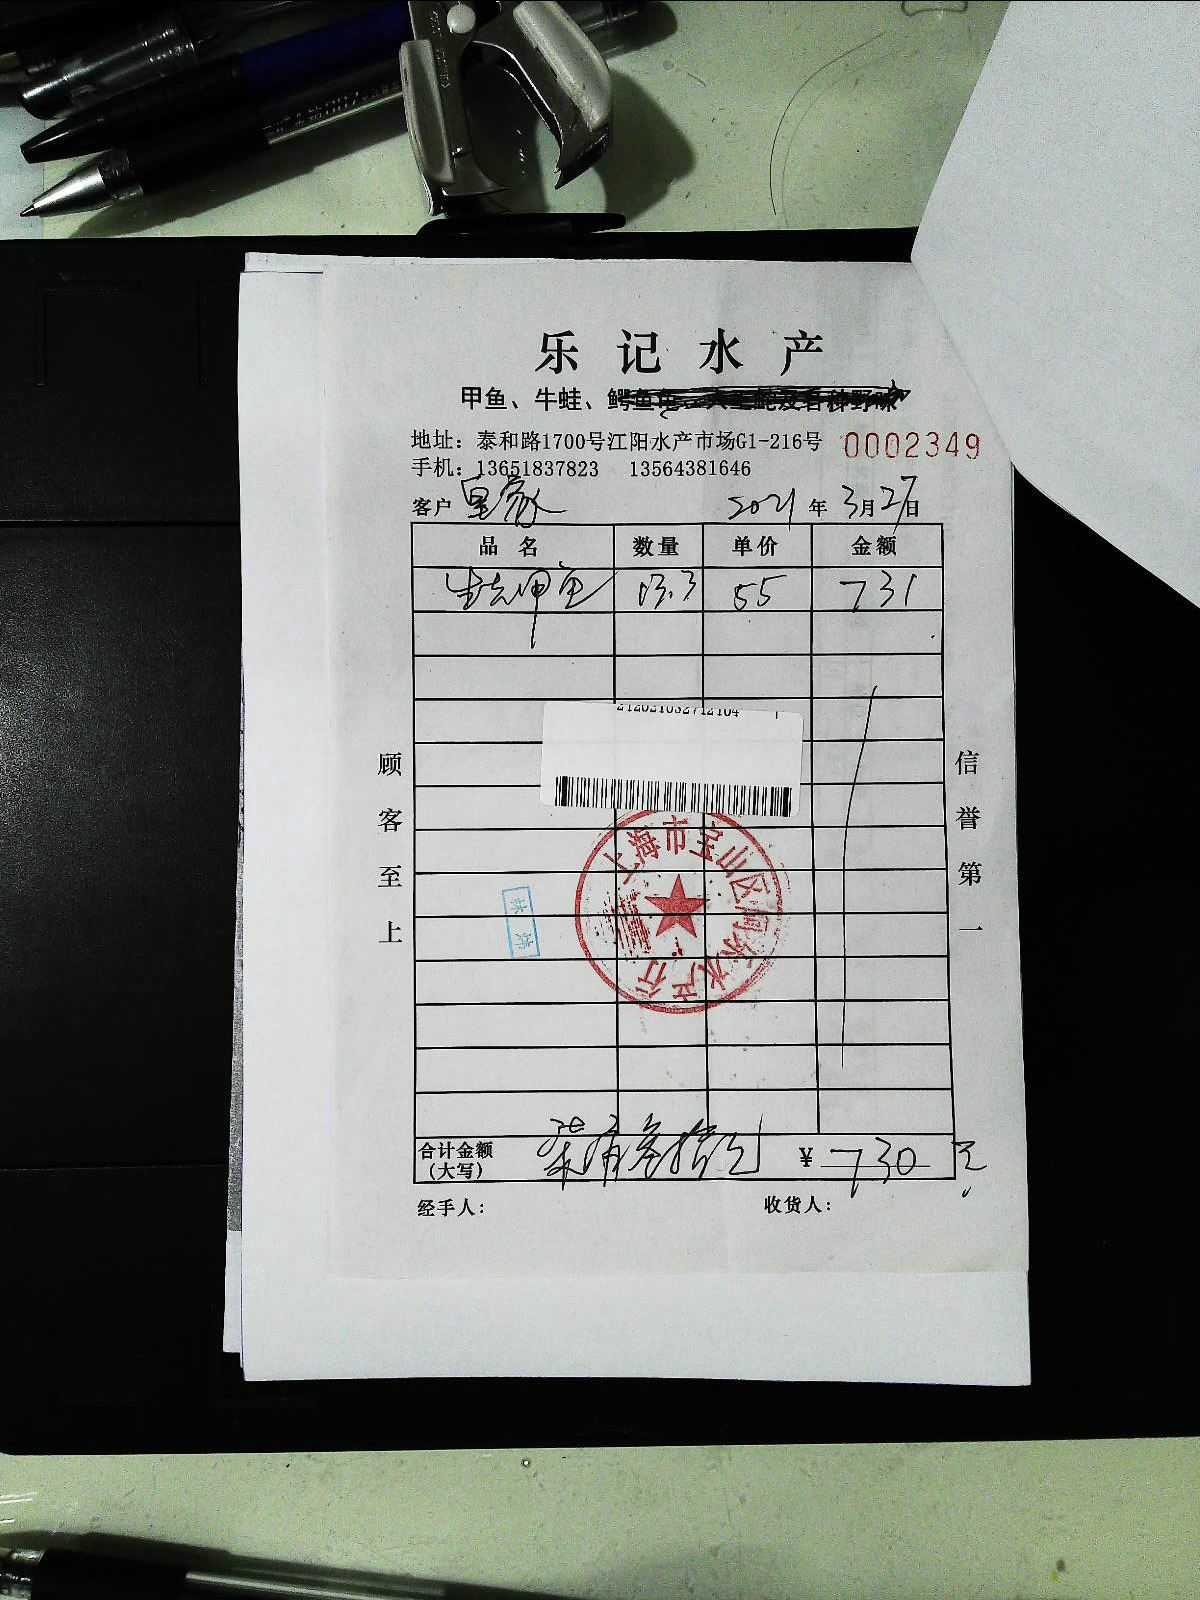 乐记水产
甲鱼、牛蛙、鳄鱼龟、大王蛇及各种野味
地址：泰和路1700号江阳水产市场G1-216号 0002349
手机：13651837823 13564381646
客户 皇家 2021年3月27日
品名 数量 单价 金额
生态甲鱼 13.3 55 731
212021032712104
顾客至上
信誉第一
上海市宝山区 水产行
合计金额 柒佰叁拾元 ¥730元
(大写)
经手人： 收货人：